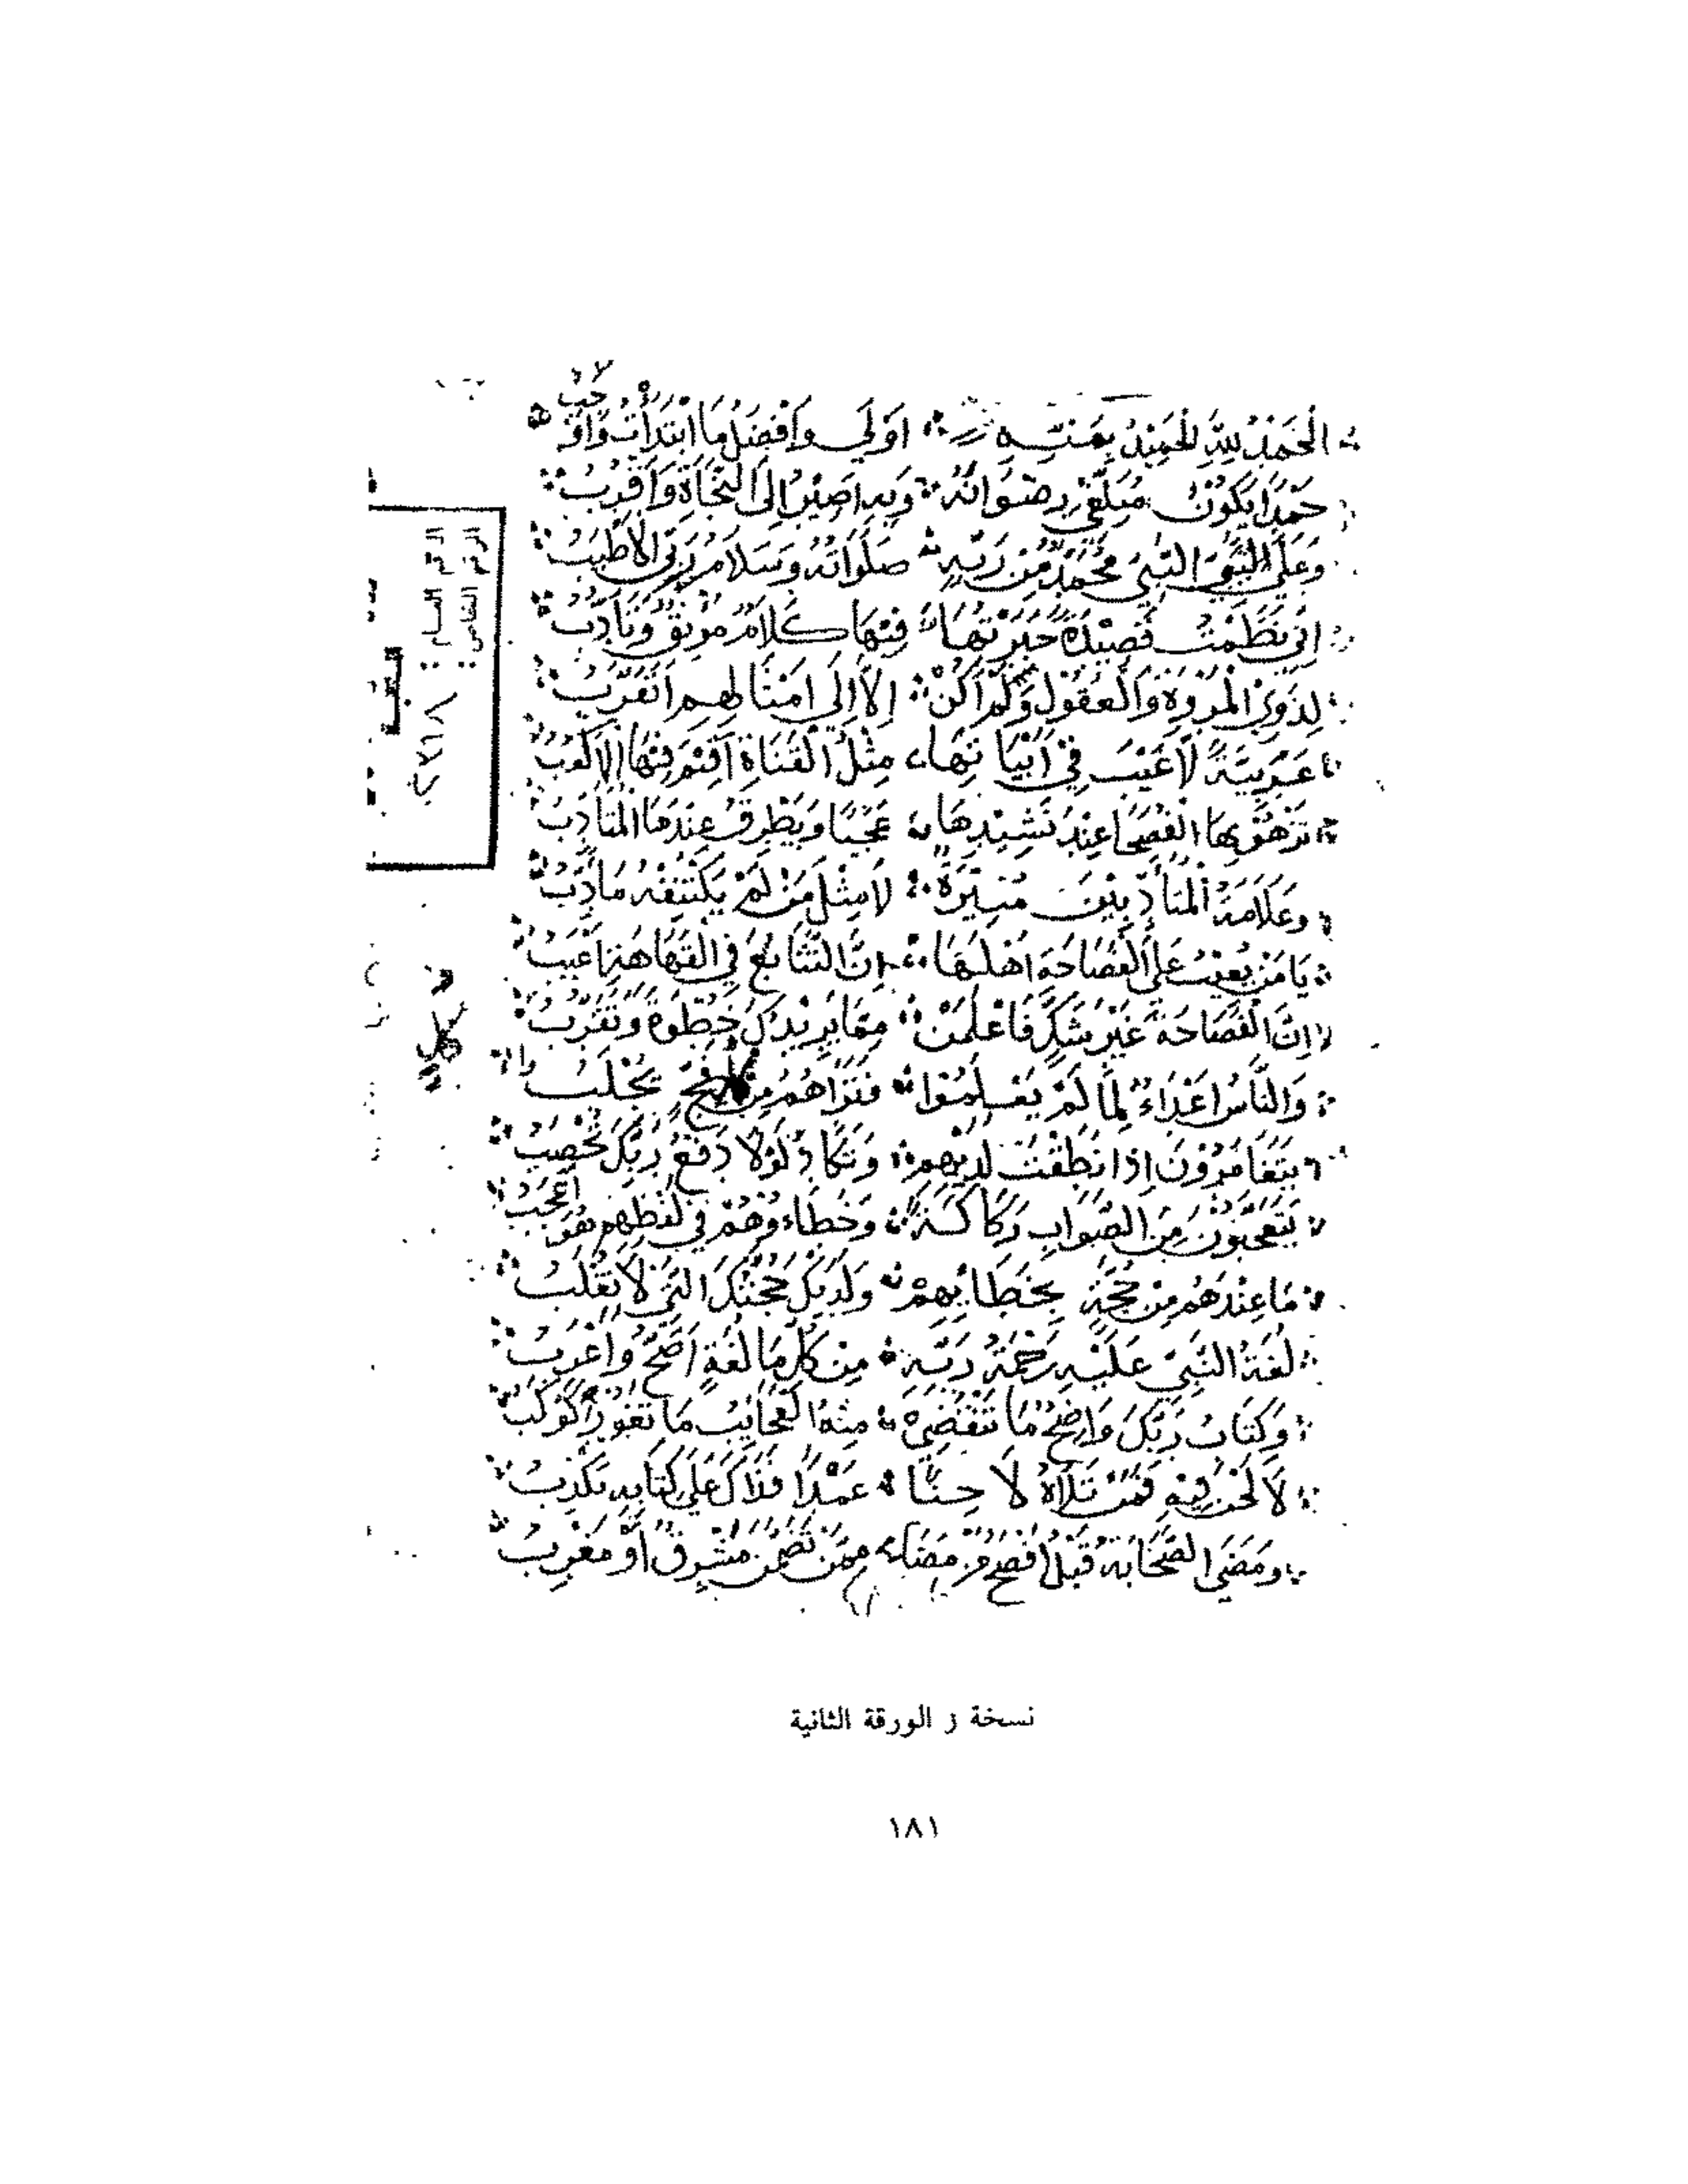 الْحَمْدُ لِلَّهِ الْحَمِيْدُ بِمَنِّهِ ؞ اَوْلَى وَاَفْضَلُ مَا ابْتَدَأْتُ وَاَوْجَبُ
حَمْدًا يَكُوْنُ مُبَلِّغِي رِضْوَانَهُ ؞ وَبِهِ اَصِيْرُ اِلَى النَّجَاةِ وَاَقْرُبُ
وَعَلَى النَّبِيِّ مُحَمَّدٍ مِنْ رَبِّهِ ؞ صَلَوَاتُهُ وَسَلَامُ رَبِّي الْاَطْيَبُ
اِنِّي نَظَمْتُ قَصِيْدَةً حَبَّرْتُهَا ؞ فِيْهَا كَلَامٌ مُوْنِقٌ وَتَأَدُّبُ
لِذَوِي الْمُرُوَّةِ وَالْعُقُوْلِ وَلَمْ اَكُنْ ؞ اِلَّا اِلَى اَمْثَالِهِمْ اَتَقَرَّبُ
عَرَبِيَّةً لَا عَيْبَ فِي اَبْيَاتِهَا ؞ مِثْلُ الْقَنَاةِ اُقِيْمَ فِيْهَا الْاَكْعُبُ
تَزْهُوْ بِهَا الْفُصَحَا عِنْدَ نَشِيْدِهَا ؞ عَجَبًا وَيُطْرِقُ عِنْدَهَا الْمُتَأَدِّبُ
وَعَلَامَةُ الْمُتَأَدِّبِيْنَ مُنِيْرَةٌ ؞ لَا مِثْلَ مَنْ لَمْ يَكْتَنِفْهُ مَأْدَبُ
يَا مَنْ يَعِيْبُ عَلَى الْفَصَاحَةِ اَهْلَهَا ؞ اِنَّ التَّتَابُعَ فِي الْفَهَاهَةِ اَعْيَبُ
اِنَّ الْفَصَاحَةَ غَيْرَ شَكٍّ فَاعْلَمَنْ ؞ مِمَّا يَزِيْدُكَ خُطْوَةً وَتُقَرِّبُ
وَالنَّاسُ اَعْدَاءٌ لِمَا لَمْ يَعْلَمُوْا ؞ فَتَرَاهُمُ مِنْ كُلِّ فَجٍّ يَجْلَبُوا
يَتَغَامَزُوْنَ اِذَا نَطَقْتَ لَدَيْهِمُ ؞ وَتَكَادُ لَوْلَا دَفْعُ رَبِّكَ تُحْصَبُ
يَتَعَجَّبُوْنَ مِنَ الصَّوَابِ رَكَاكَةً ؞ وَخَطَاءُوْهُمْ فِي لَفْظِهِمْ هُوَ اَعْجَبُ
مَا عِنْدَهُمْ مِنْ حُجَّةٍ بِخَطَائِهِمْ ؞ وَلَدَيْكَ حُجَّتُكَ الَّتِي لَا تُغْلَبُ
لُغَةُ النَّبِيِّ عَلَيْهِ رَحْمَةُ رَبِّهِ ؞ مِنْ كُلِّ مَا لُغَةٍ اَصَحُّ وَاَعْرَبُ
وَكِتَابُ رَبِّكَ وَاضِحٌ مَا تَنْقَضِي ؞ مِنْهُ الْعَجَائِبُ مَا تَغَوَّرَ كَوْكَبُ
لَا لَحْنَ فِيْهِ فَمَنْ تَلَاهُ لَاحِنًا ؞ عَمْدًا فَذَاكَ عَلَى كِتَابِهِ يَكْذِبُ
وَمَضَى الصَّحَابَةُ قَبْلُ اَفْصَحُ مَنْ مَضَى ؞ مِمَّنْ تَضَمَّنَ مَشْرِقٌ اَوْ مَغْرِبُ
نسخة ز الورقة الثانية
١٨١